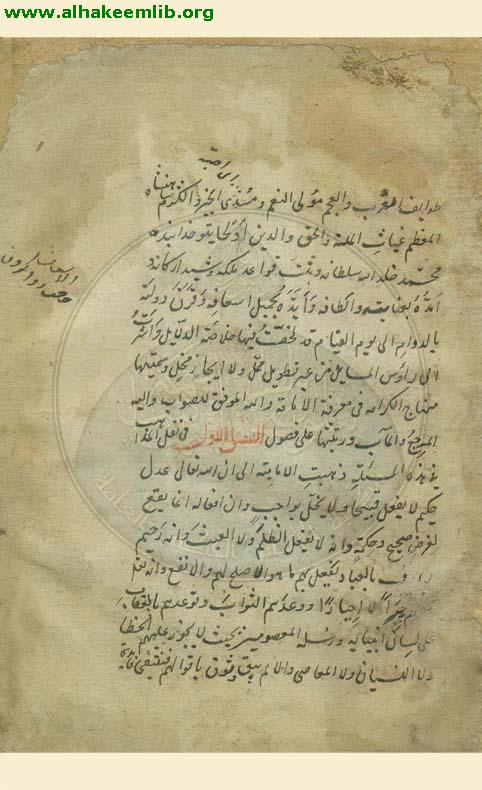 www.alhakeemlib.org
طوايف العرب والعجم مولى النعم ومسدى الخير والكرم شاهنشاه
المعظم غياث الملة والحق والدين اولجايتو خدابنده
محمد خلد الله سلطانه وثبت قواعد ملكه وشيد اركانه و
امده بعنايته والطافه وايده بجميل اسعافه وقرن دولته
بالدوام الى يوم القيام قد لخصت فيها خلاصة الدلايل واشرت
الى رؤس المسايل من غير تطويل ممل ولا ايجاز مخل وسميتها
منهاج الكرامه في معرفة الامامة والله الموفق للصواب واليه
المرجع والمآب ورتبتها على فصول الفصل الاول في نقل المذاهب
في هذه المسئلة ذهبت الامامية الى ان الله تعالى عدل
حكيم لا يفعل قبيحا ولا يخل بواجب وان افعاله انما يقع
لغرض صحيح وحكمة وانه لا يفعل الظلم ولا العبث وانه رحيم
بالعباد يفعل بهم ما هو الاصلح لهم والانفع وانه تعالى
لا اجبارا ووعدهم الثواب وتوعدهم بالعقاب
على لسان انبيائه ورسله المعصومين بحيث لا يجوز عليهم الخطأ
ولا النسيان ولا المعاصي والا لم يبق وثوق باقوالهم فتنتفى فايدة